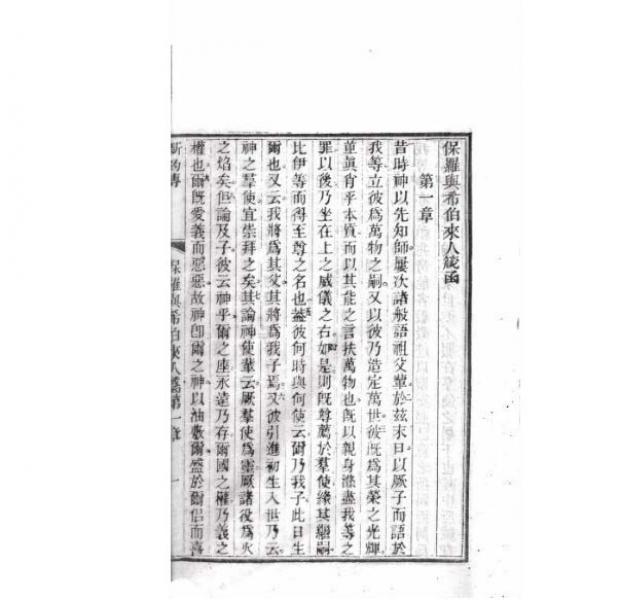 保羅與希伯來人箋函
第一章
昔時神以先知師屢次諸般語祖父輩於茲末日以厥子而語於
我等立彼爲萬物之嗣又以彼乃造定萬世彼既爲其榮之光輝
眞肖乎本質而以其能之言扶萬物也既以親身滌盡我等之
罪以後乃坐在上之威儀之右如是則既尊薦於羣使緣其繼嗣
比伊等而得至尊之名也蓋彼何時與何使云爾乃我子此日生
爾也又云我將爲其父其將爲我子焉又彼引進初生入世乃云
神之羣使宜崇拜之矣其論神使輩云厥羣使爲靈厥諸役爲火
之焰矣但論及子彼云神乎爾之座永遠乃存爾國之權乃義之
權也爾既愛義而惡惡故神卽爾之神以油傅爾盛於爾侣而喜
保羅與希伯來人篇第一章 一